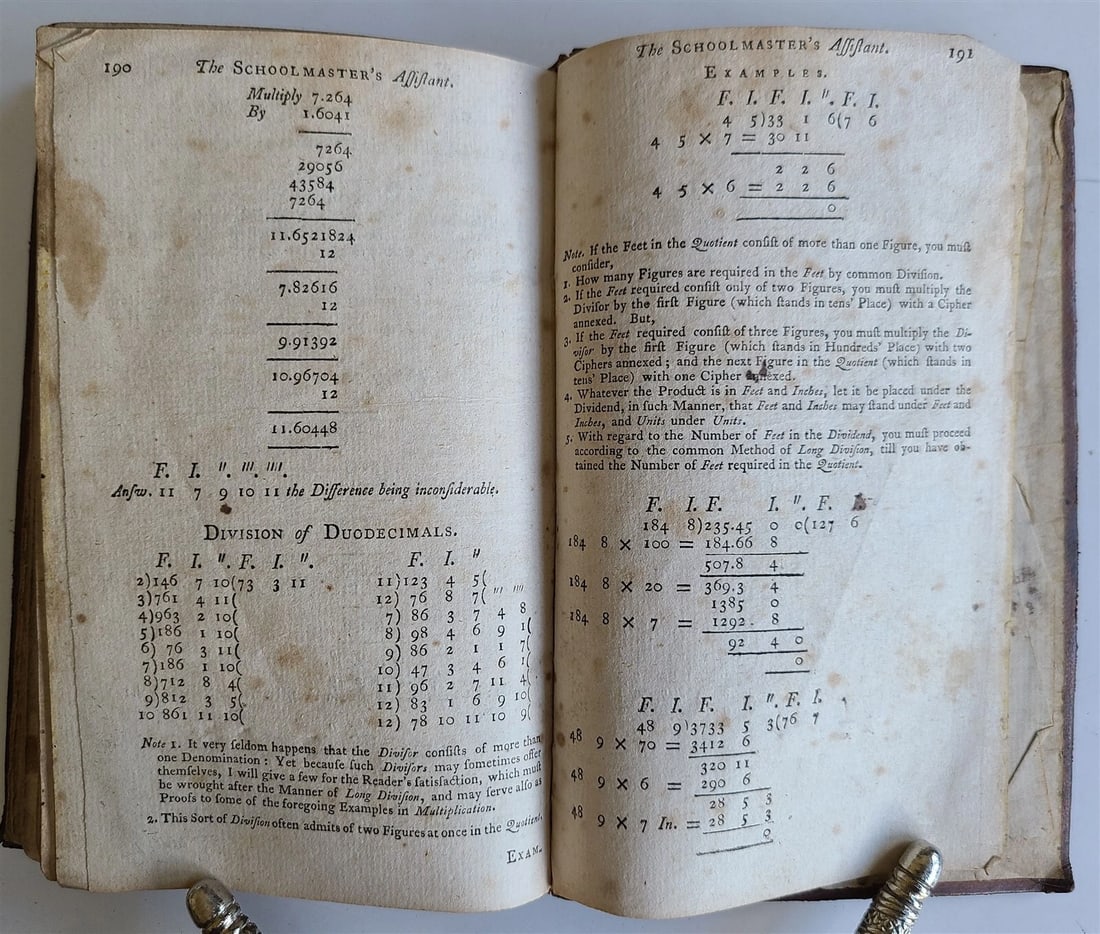 190 The SCHOOLMASTER'S Aſſiſtant.
Multiply 7.264
By 1.6041
7264
29056
43584
7264
11.6521824
12
7.82616
12
9.91392
10.96704
12
11.60448
F. I. ''. '''. ''''.
Anſw. 11 7 9 10 11 the Difference being inconſiderable.
DIVISION of DUODECIMALS.
F. I. ''. F. I. ''. F. I. ''
2)146 7 10(73 3 11 11)123 4 5(
3)761 4 11( 12) 76 8 7( ''' ''''
4)963 2 10( 7) 86 3 7 4 8
5)186 1 10( 8) 98 4 6 9 1(
6) 76 3 11( 9) 86 2 1 1 7(
7)186 1 10( 10) 47 3 4 6 1(
8)712 8 4( 11) 96 2 7 11 4(
9)812 3 5( 12) 83 1 6 9 10(
10 861 11 10( 12) 78 10 11 10 9(
Note 1. It very ſeldom happens that the Diviſor conſiſts of more than
one Denomination: Yet becauſe ſuch Diviſors may ſometimes offer
themſelves, I will give a few for the Reader's ſatisfaction, which muſt
be wrought after the Manner of Long Diviſion, and may ſerve alſo as
Proofs to ſome of the foregoing Examples in Multiplication.
2. This Sort of Diviſion often admits of two Figures at once in the Quotient.
EXAM.
The SCHOOLMASTER'S Aſſiſtant. 191
EXAMPLES.
F. I. F. I. ''. F. I.
4 5)33 1 6(7 6
4 5 × 7 = 30 11
2 2 6
4 5 × 6 = 2 2 6
0
Note. If the Feet in the Quotient conſiſt of more than one Figure, you muſt
conſider,
1. How many Figures are required in the Feet by common Diviſion.
2. If the Feet required conſiſt only of two Figures, you muſt multiply the
Diviſor by the firſt Figure (which ſtands in tens' Place) with a Cipher
annexed. But,
3. If the Feet required conſiſt of three Figures, you muſt multiply the Di-
viſor by the firſt Figure (which ſtands in Hundreds' Place) with two
Ciphers annexed; and the next Figure in the Quotient (which ſtands in
tens' Place) with one Cipher annexed.
4. Whatever the Product is in Feet and Inches, let it be placed under the
Dividend, in ſuch Manner, that Feet and Inches may ſtand under Feet and
Inches, and Units under Units.
5. With regard to the Number of Feet in the Dividend, you muſt proceed
according to the common Method of Long Diviſion, till you have ob-
tained the Number of Feet required in the Quotient.
F. I. F. I. ''. F. I.
184 8)235.45 0 0(127 6
184 8 × 100 = 184.66 8
507.8 4
184 8 × 20 = 369.3 4
1385 0
184 8 × 7 = 1292. 8
92 4 0
0
F. I. F. I. ''. F. I.
48 9)3733 5 3(76 7
48 9 × 70 = 3412 6
320 11
48 9 × 6 = 290 6
28 5 3
48 9 × 7 In. = 28 5 3
0